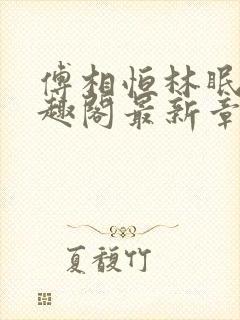 傅相恒林眠
趣阁最新章
夏馥竹